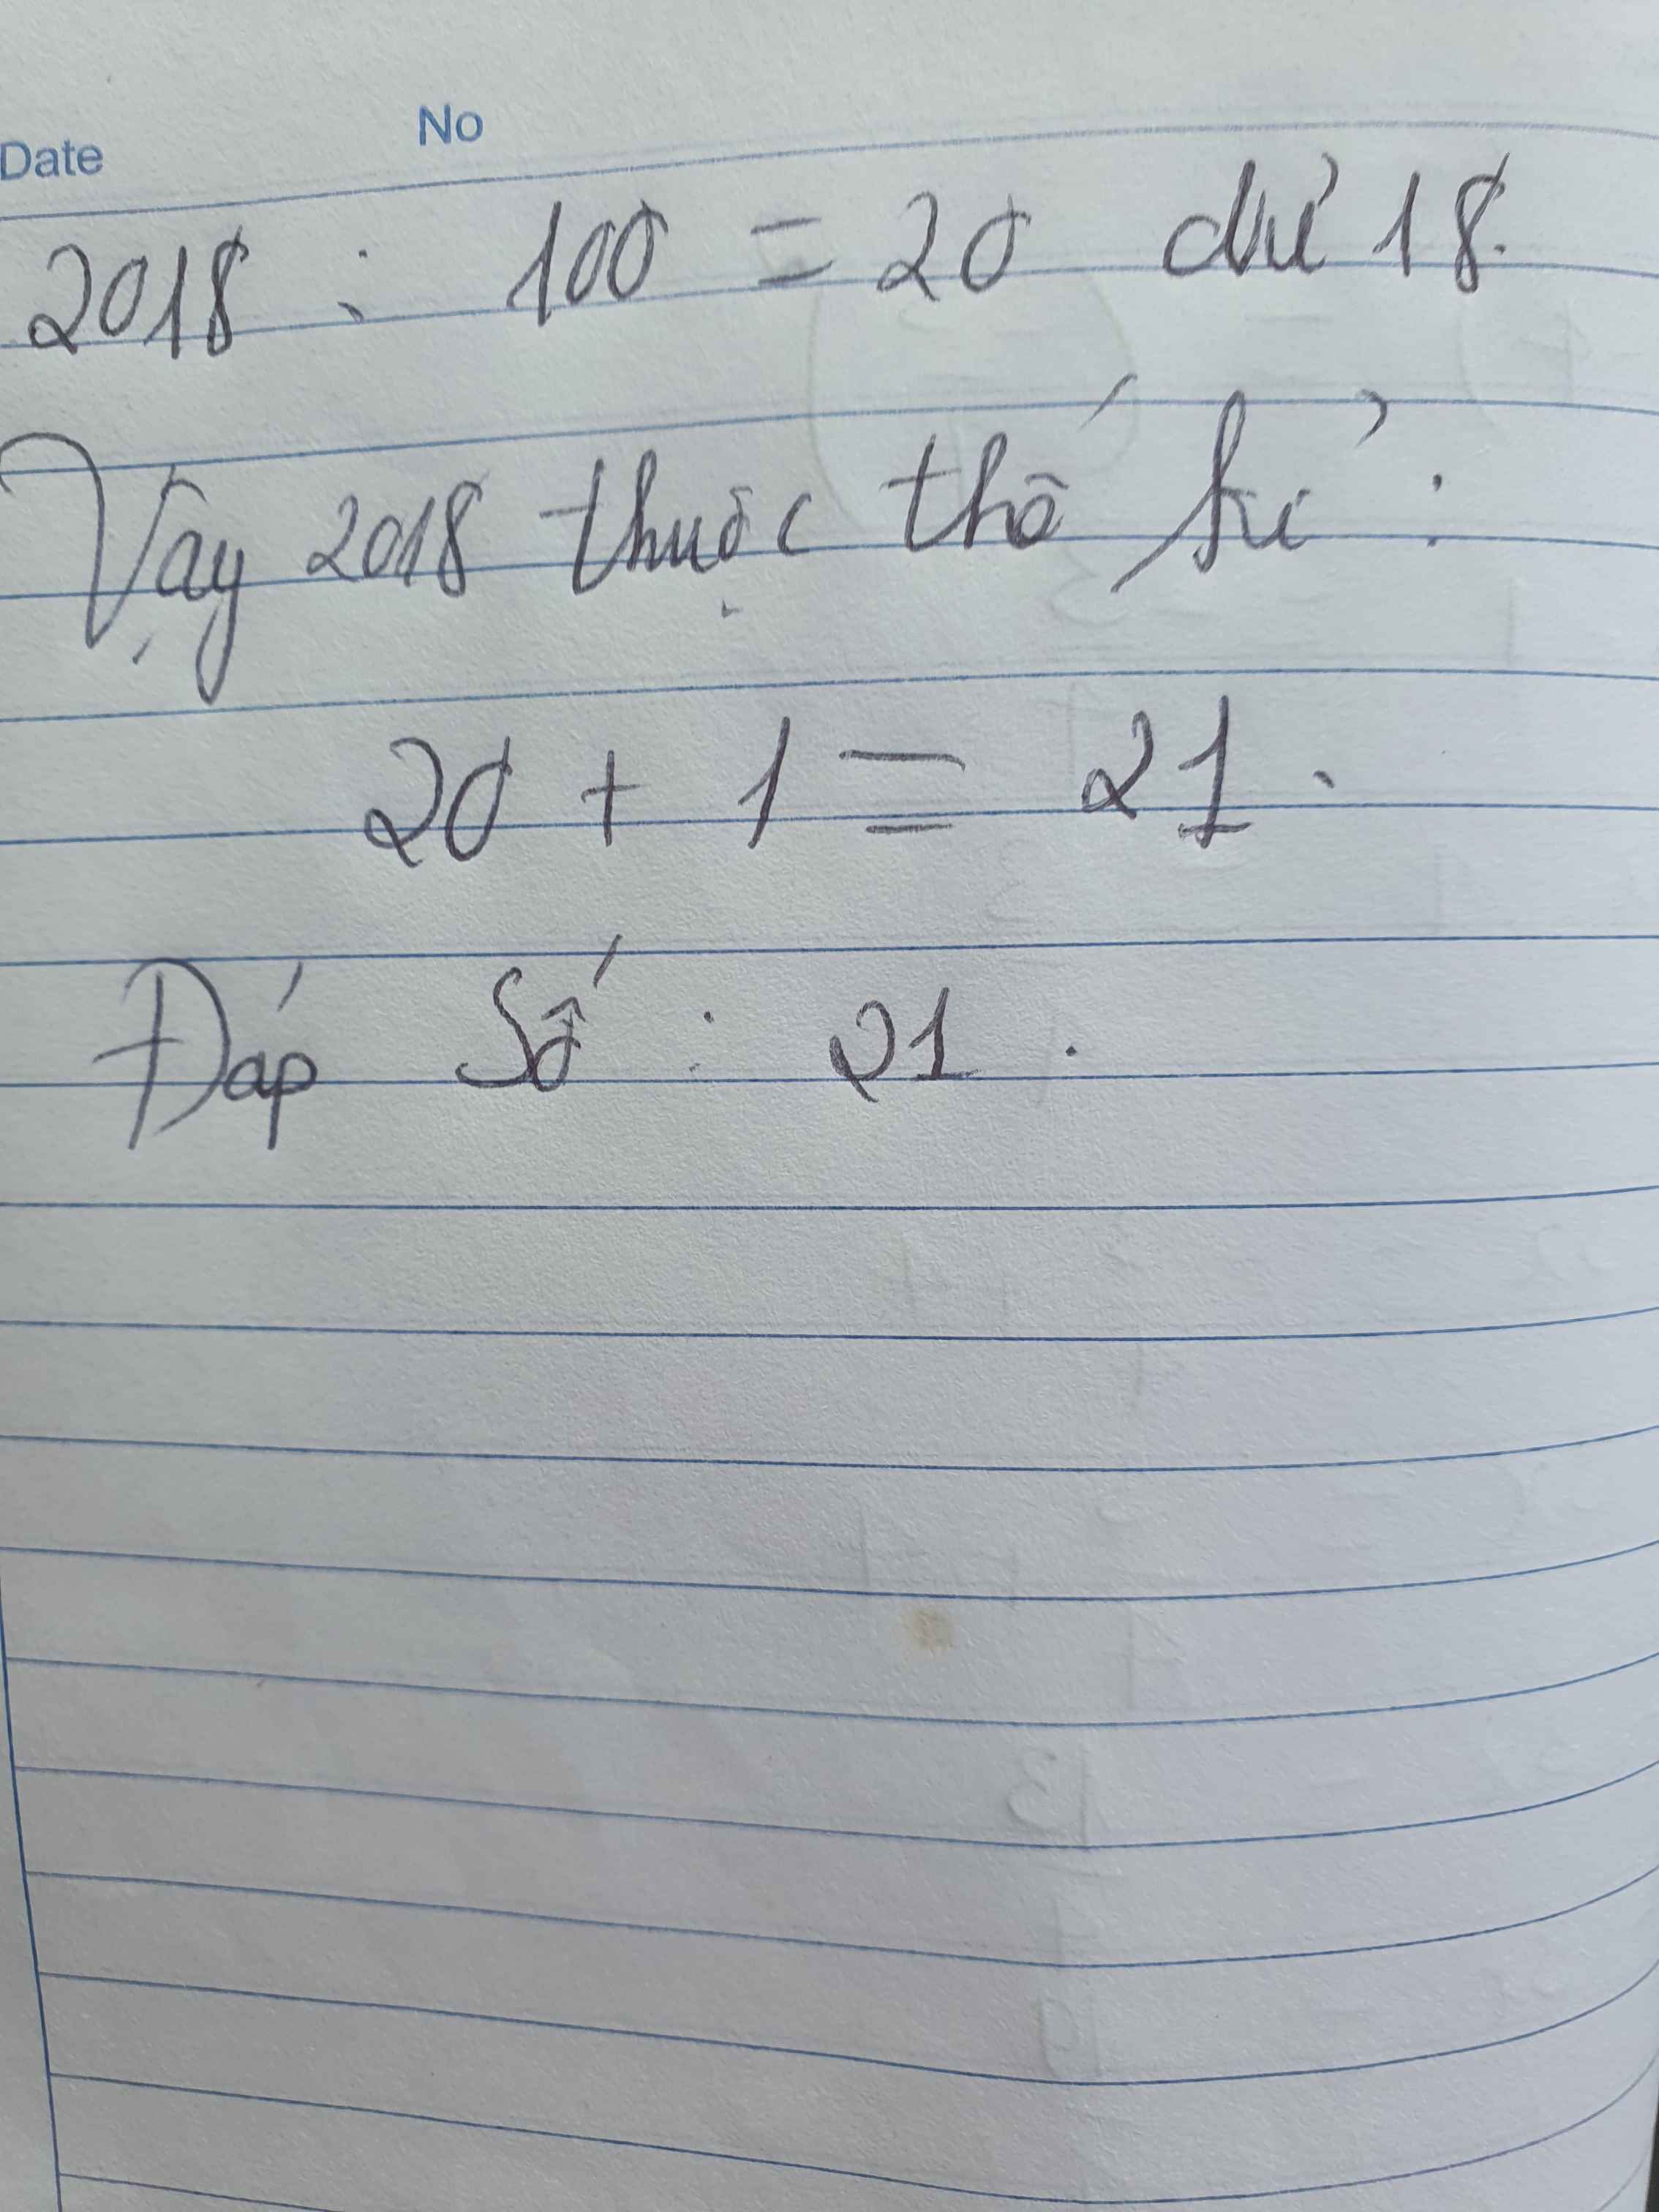 Date No
2018 : 100 = 20 dư 18.
Vậy 2018 thuộc thế kỉ :
20 + 1 = 21.
Đáp Số : 21.